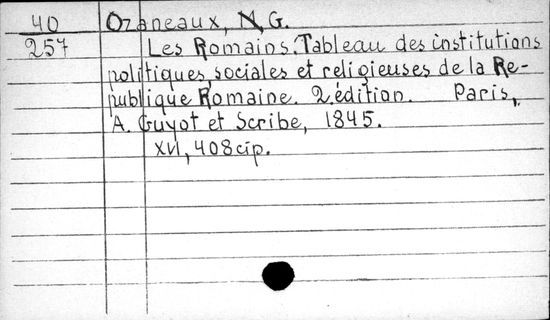 40 Ozaneaux, N, G.
257 Les Romains. Tableau des institutions
politiques, sociales et religieuses de la Re-
publique Romaine. 2. édition. Paris,
A. Guyot et Scribe, 1845.
XVI, 408 cip.